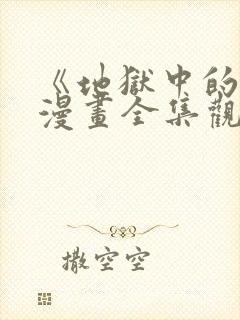 《地獄中的
漫畫全集觀
撒空空